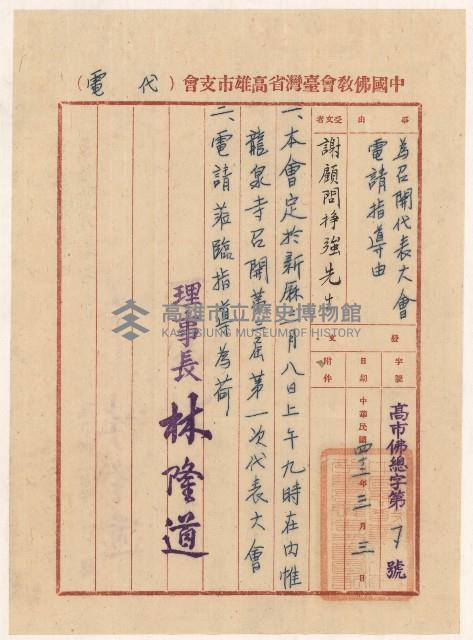 中國佛教會臺灣省高雄市支會（代電）
事由
為召開代表大會
電請指導由
受文者
謝顧問掙強先生
發文
字號
高市佛總字第 號
日期
中華民國四三年三月三日
附件
一、本會定於新曆 月八日上午九時在內惟
龍泉寺召開第 屆第一次代表大會
二、電請蒞臨指導為荷
理事長 林隆道
高雄市立歷史博物館
KAOHSIUNG MUSEUM OF HISTORY